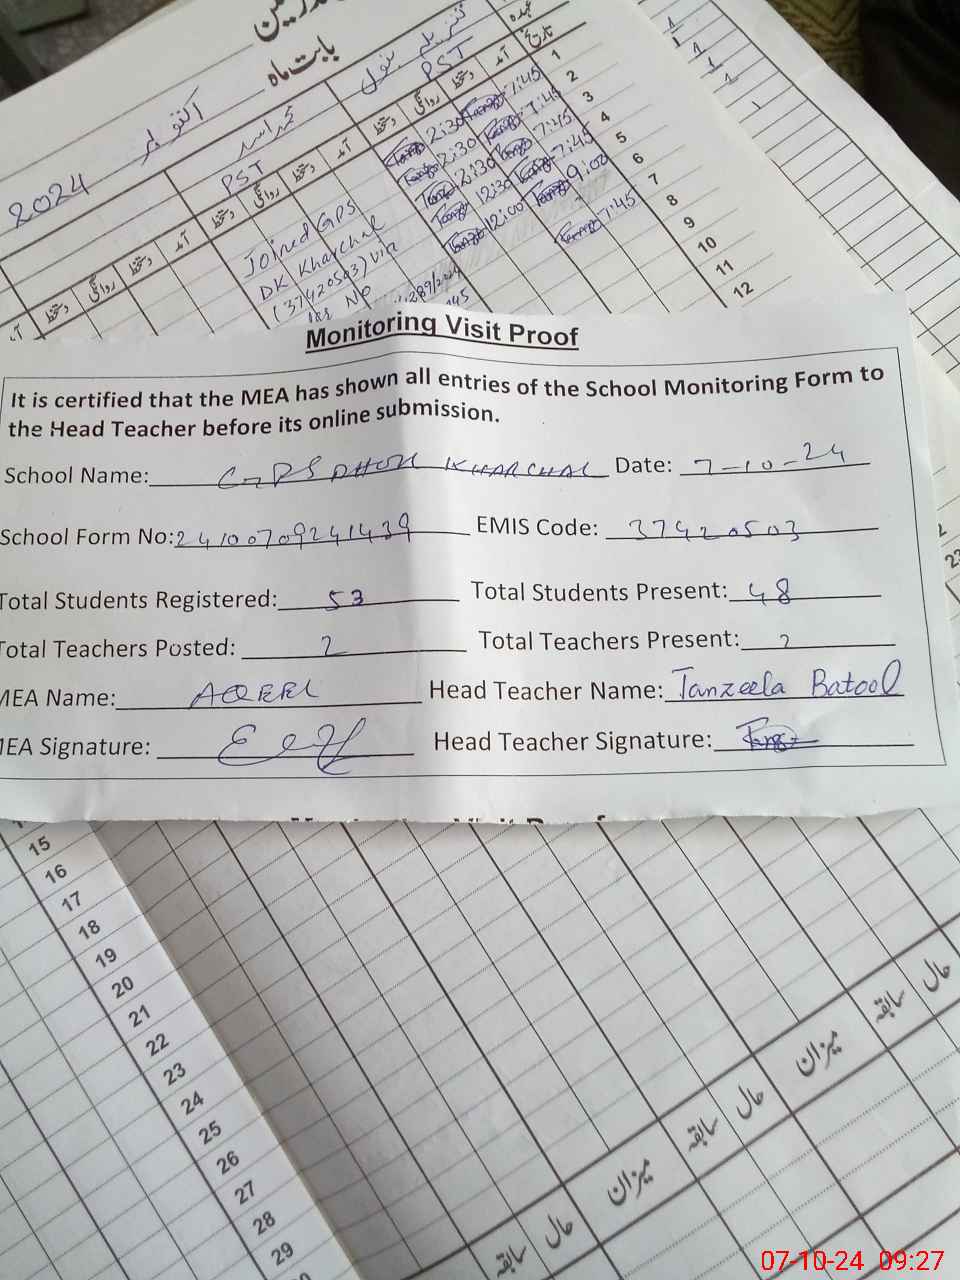 بابت ماہ
اکتوبر 2024
عہدہ
PST
PST
تاریخ
آمد
دستخط
روانگی
دستخط
آمد
دستخط
روانگی
دستخط
آمد
1
2
3
4
5
6
7
8
9
10
11
12
2:30 7:45
2:30 7:45
2:30 7:45
12:30 7:45
12:00 9:00
7:45
Joined GPS
DK Kharchal
(37420503) via
No
Monitoring Visit Proof
It is certified that the MEA has shown all entries of the School Monitoring Form to
the Head Teacher before its online submission.
School Name: GPS DHOK KHARCHAL Date: 7-10-24
School Form No: 24100709241439 EMIS Code: 37420503
Total Students Registered: 53 Total Students Present: 48
Total Teachers Posted: 2 Total Teachers Present: 2
MEA Name: AQEEL Head Teacher Name: Tanzeela Batool
MEA Signature: Head Teacher Signature:
15
16
17
18
19
20
21
22
23
24
25
26
27
28
29
حال
سابقہ
میزان
حال
سابقہ
میزان
حال
سابقہ
07-10-24 09:27